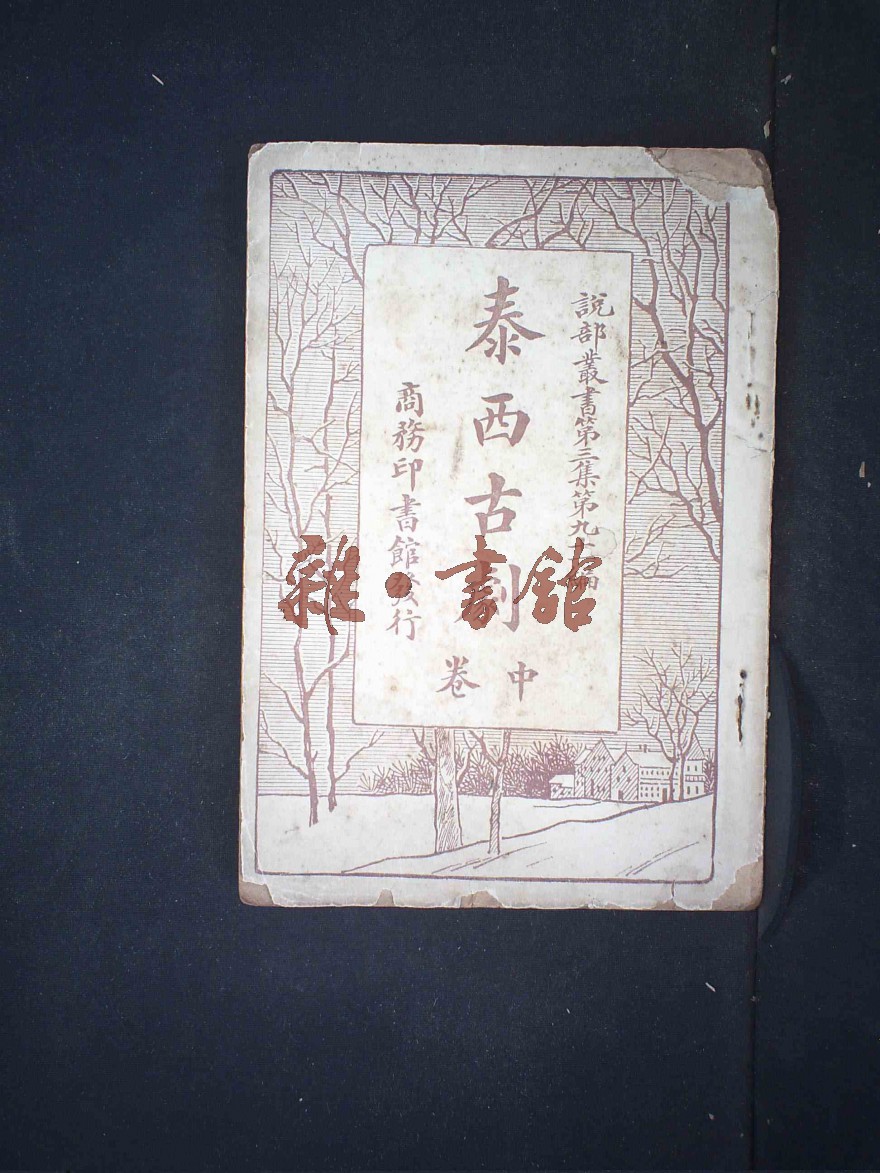 說部叢書第三集第九十編
泰西古劇
中卷
商務印書館發行
雜·書館